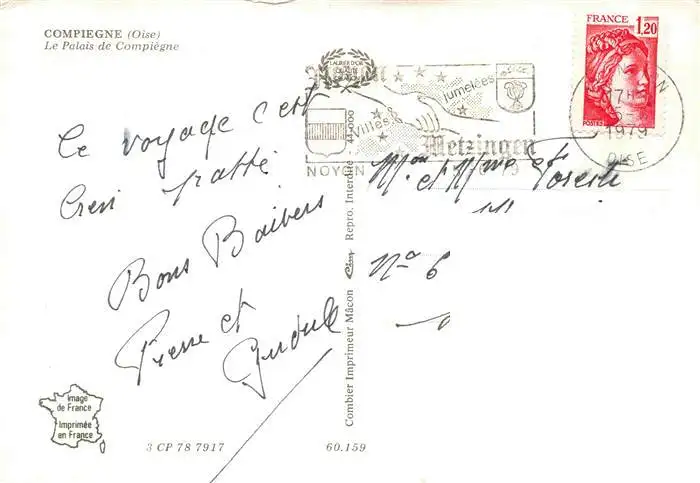 COMPIEGNE (Oise)
Le Palais de Compiègne
FRANCE
1,20
POSTES
LAURIER D'OR
jumelées
Villes
Metzingen
NOYON
17H
1979
OISE
Le voyage c'est
bien passé
Bons Baisers
Pierre et
Mon et Mme
N° 6
Combier Imprimeur Mâcon Cim Repro. Interdite
Image
de France
Imprimée
en France
3 CP 78 7917
60.159